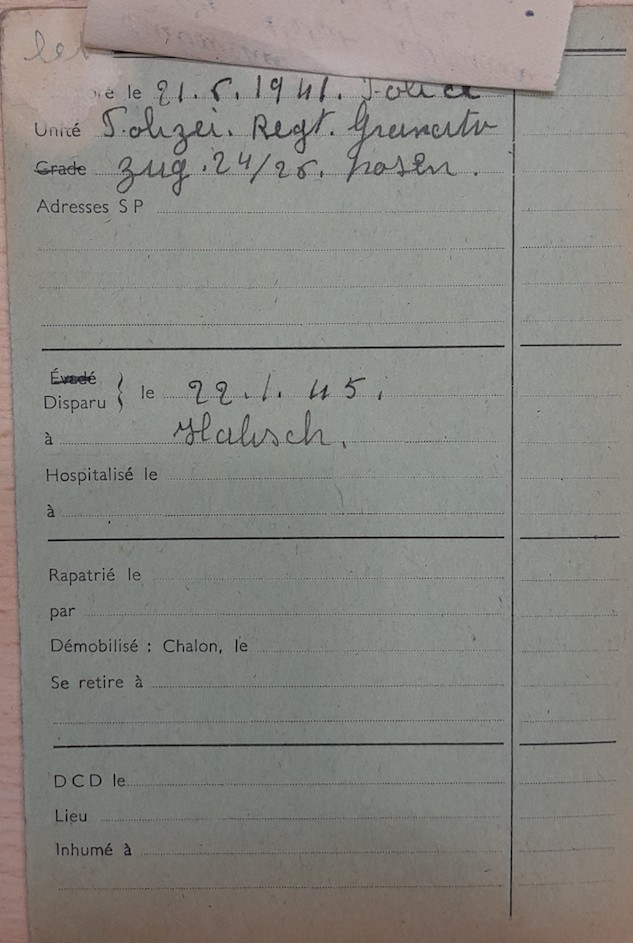 le 21.5.1941. Police
Unité Polizei. Regt. Granatw
Grade Zug. 24/25. Posen.
Adresses S P
Évadé
Disparu } le 22.1.45.
à
Hospitalisé le
à
Rapatrié le
par
Démobilisé : Chalon, le
Se retire à
D C D le
Lieu
Inhumé à